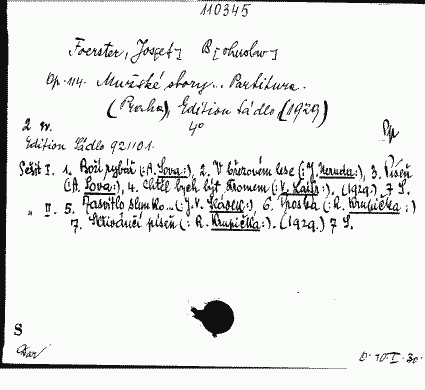 110345
Foerster, Jos[ef] B[ohuslav]
Op. 114. Mužské sbory... Partitura.
(Praha), Edition Sádlo (1929)
2 sv. 4°
Edition Sádlo 921101.
Sešit I. 1. Boží rybář (: A. Sova:), 2. V březovém lese (: J. Neruda:), 3. Píseň
(: A. Sova:), 4. Chtěl bych být stromem (: V. :), (1929.) 7 S.
„ II. 5. Zasvitlo slunko... (: J. V. Sládek:) 6. (: R. Krupička :)
7. píseň (: R. Krupička:). (1929.) 7 S.
S
Dar
D. 10-I-30.